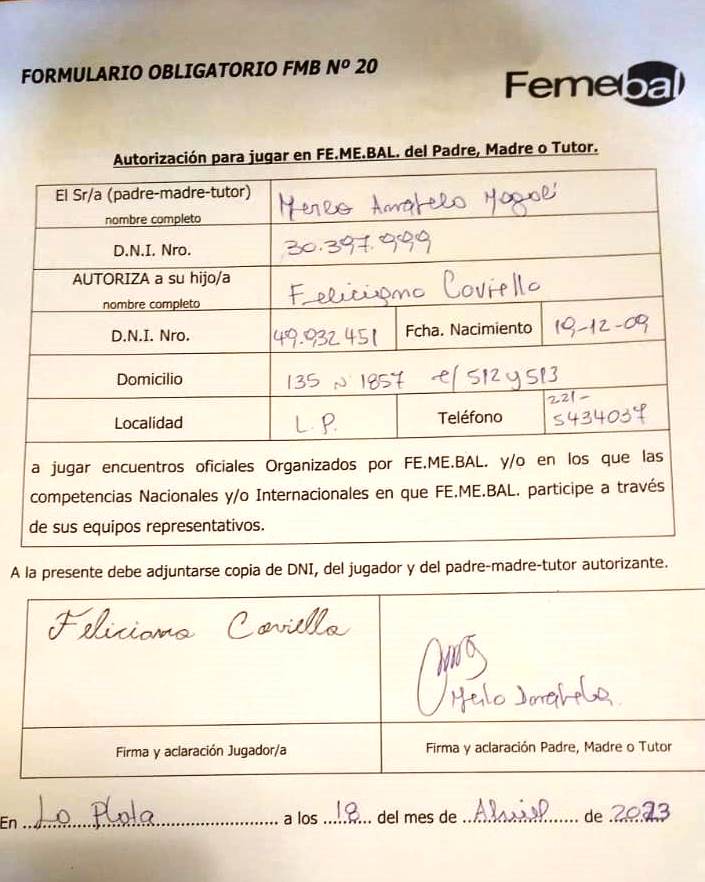 FORMULARIO OBLIGATORIO FMB Nº 20
Femebal
Autorización para jugar en FE.ME.BAL. del Padre, Madre o Tutor.
El Sr/a (padre-madre-tutor)
nombre completo
D.N.I. Nro. 30.397.999
AUTORIZA a su hijo/a
nombre completo
Feliciano Coviello
D.N.I. Nro. 49.932 451 Fcha. Nacimiento 19-12-09
Domicilio 135 N 1857 e/ 512 y 513
Localidad L.P. Teléfono 221-
5434037
a jugar encuentros oficiales Organizados por FE.ME.BAL. y/o en los que las
competencias Nacionales y/o Internacionales en que FE.ME.BAL. participe a través
de sus equipos representativos.
A la presente debe adjuntarse copia de DNI, del jugador y del padre-madre-tutor autorizante.
Feliciano Coviello
Firma y aclaración Jugador/a Firma y aclaración Padre, Madre o Tutor
En La Plata a los 18 del mes de Abril de 2023